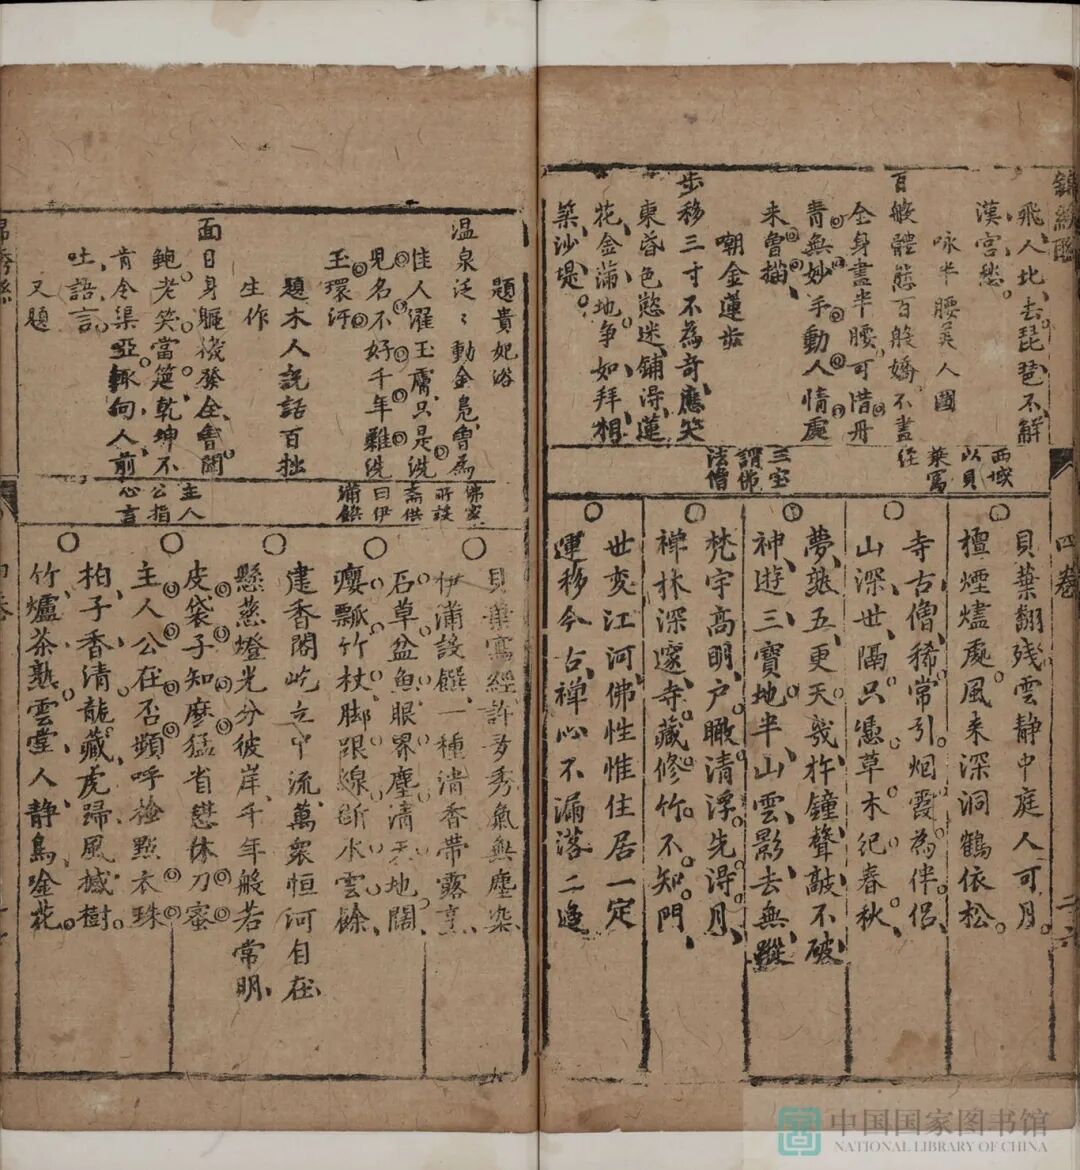 飛人北去琵琶不解
漢宮愁
咏半腰美人圖
百般體態百般嬌不盡
全身畫半腰可惜丹
青無妙手動人情處
未曾描
嘲金蓮步
步移三寸不為奇應笑
東昏色慾迷鋪得蓮
花金蒲地争如拜相
築沙堤
西域
以貝
葉寫
經
三宝
謂佛
法僧
四卷
二六
貝葉翻殘雲靜中庭人可月
檀煙燼處風来深洞鶴依松
寺古僧稀常引烟霞為伴侣
山深世隔只憑草木紀春秋
夢熟五更天幾杵鐘聲敲不破
神遊三寶地半山雲影去無蹤
梵宇高明戸瞰清浮先得月
禅林深邃寺藏修竹不知門
世変江河佛性惟住居一定
運移今古禅心不漏落二邊
題貴妃浴
温泉泛〻動金鳧曾為
佳人濯玉膚只是洗
児名不好千年難洗
玉環汚
題木人説話百拙
生作
面目身軀機發全會開
鮑老笑當筵乾坤不
肯令渠亞輙向人前
吐語言
又題
佛家
所設
斎供
曰伊
蒲饌
主人
公指
心言
貝葉寫經許多秀氣無塵染
伊蒲設饌一種清香帶露烹
石草盆魚眼界塵清天地闊
癭瓢竹杖脚跟線断水雲餘
建香閣屹立中流萬衆恒河自在
懸慈燈光分彼岸千年般若常明
皮袋子知麽猛省戀休刀蜜
主人公在否頻呼檢㸃衣珠
柏子香清龍藏虎歸風撼樹
竹爐茶熟雲堂人靜鳥唫花
中国国家图书馆
NATIONAL LIBRARY OF CHINA